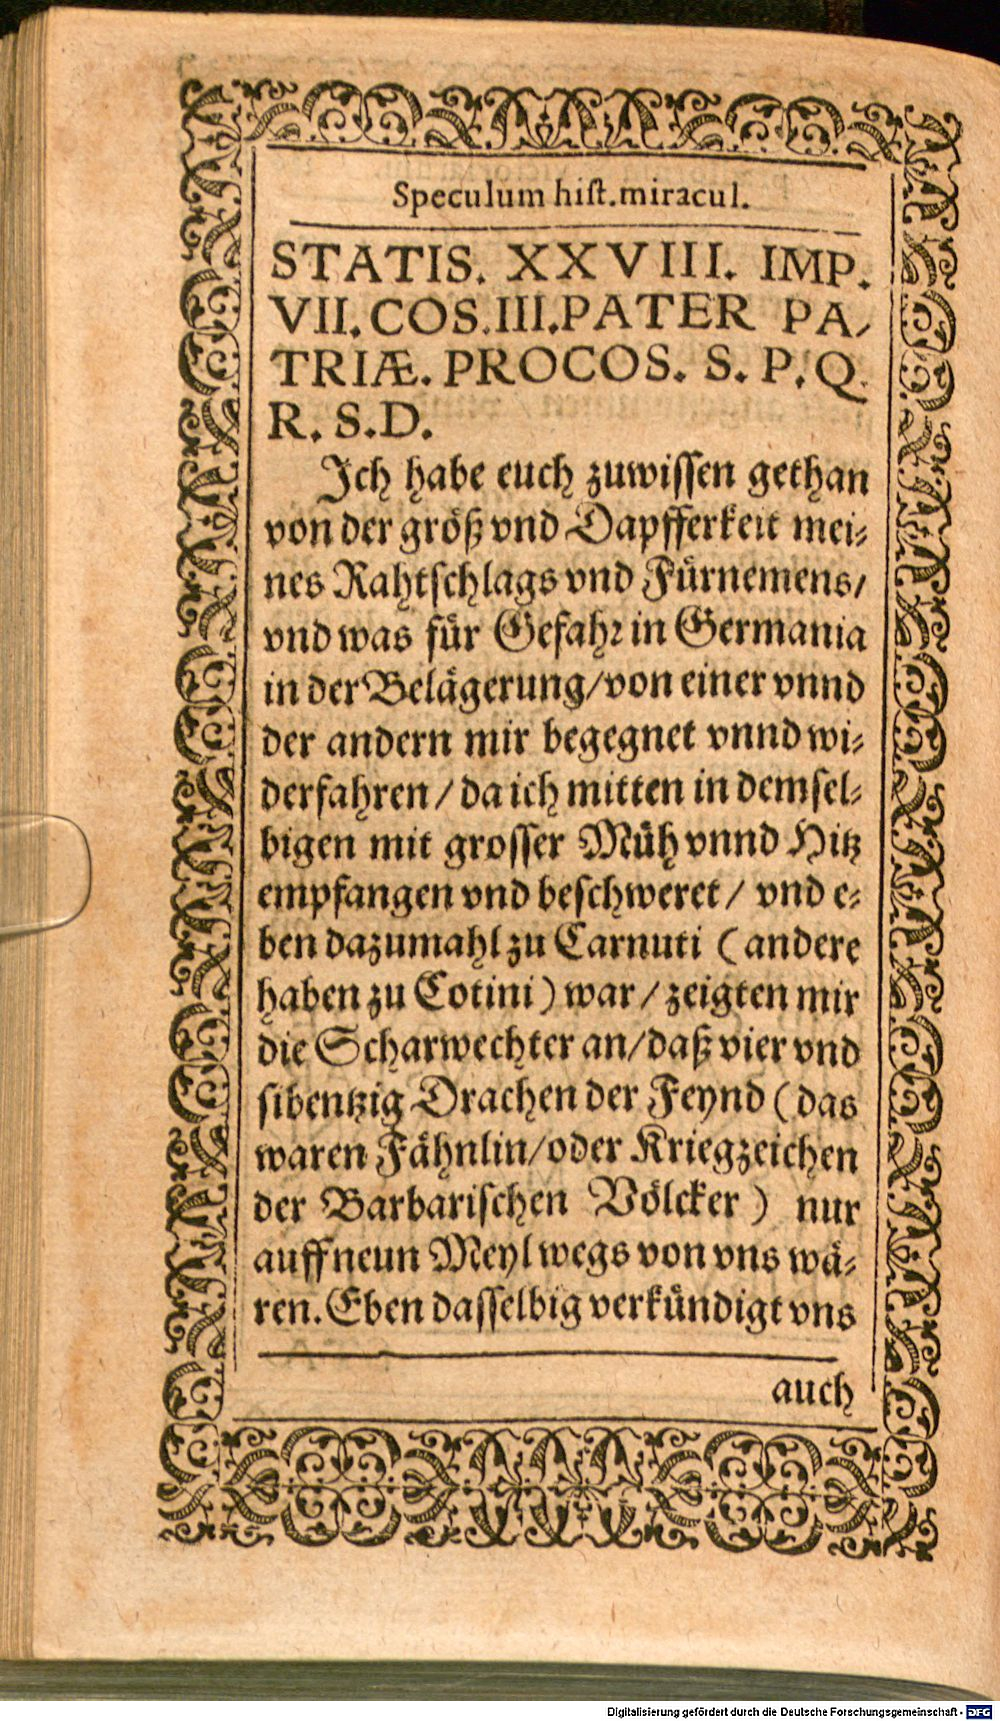 Speculum hiſt.miracul.
STATIS. XXVIII. IMP.
VII. COS. III. PATER PA-
TRIÆ. PROCOS. S. P. Q.
R. S. D.
Ich habe euch zuwiſſen gethan
von der größ vnd Dapfferkeit mei-
nes Rahtſchlags vnd Fürnemens/
vnd was für Gefahr in Germania
in der Belägerung/von einer vnnd
der andern mir begegnet vnnd wi-
derfahren / da ich mitten in demſel-
bigen mit groſſer Müh vnnd Hitz
empfangen vnd beſchweret / vnd e-
ben dazumahl zu Carnuti (andere
haben zu Cotini) war / zeigten mir
die Scharwechter an/daß vier vnd
ſibentzig Drachen der Feynd (das
waren Fähnlin/oder Kriegzeichen
der Barbariſchen Völcker) nur
auff neun Meyl wegs von vns wä-
ren. Eben daſſelbig verkündigt vns
auch
Digitalisierung gefördert durch die Deutsche Forschungsgemeinschaft - DFG